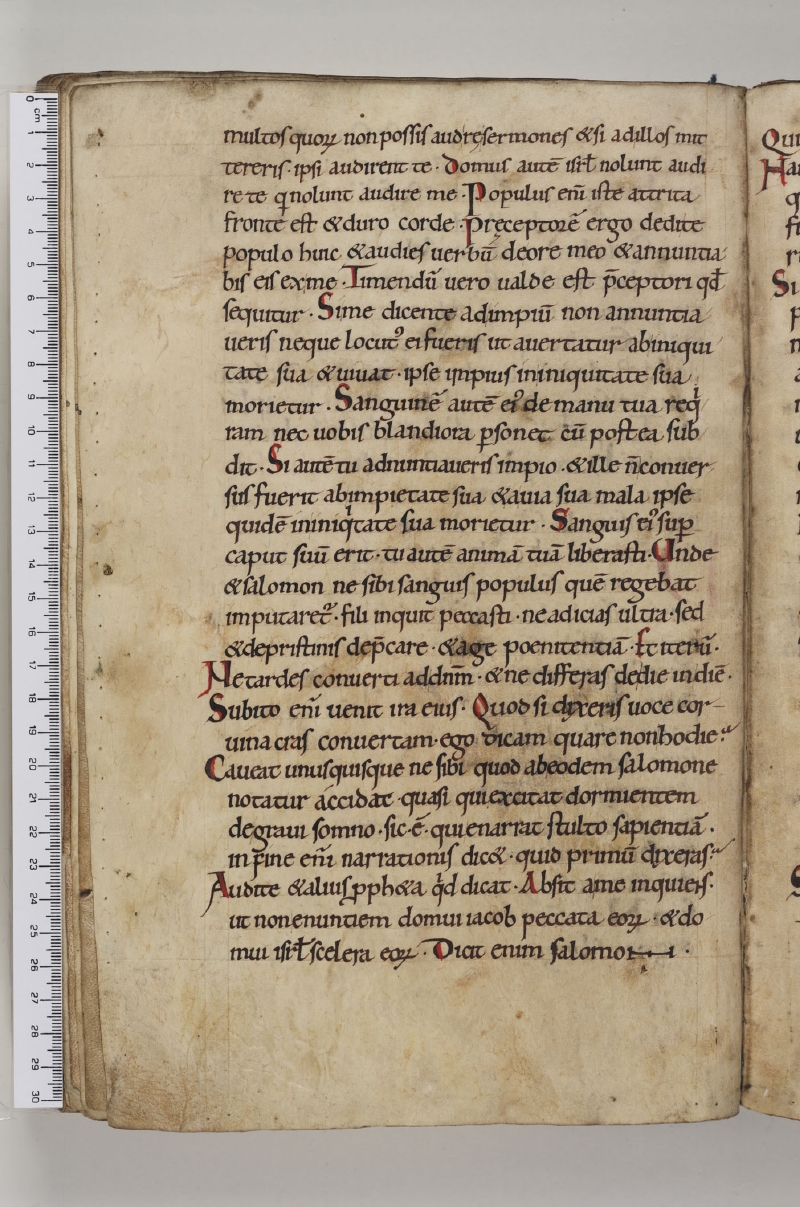 multos quoꝝ non possis audire sermones &si adillos mit
tereris· ipsi audirent te· Domus autē isrł nolunt audi
re te q̄ nolunt audire me· Populus eni̅ iste attrita
fronte est &duro corde· Pręceptorē ergo dedite
populo huic &audies uerbū deore meo &annuntia
bis eis exme· Timendū uero ualde est p̄ceptori qđ
sequitur· Sime dicente adimpiū non annuntia
ueris neque locutꝰ ei fueris ut auertatur abiniqui
tate sua &uiuat· ipse impius ininiquitate sua
morietur· Sanguinē autē eiꝰ de manu tua req̇
ram nec uobis blandiora ꝑsonet cū postea sub
dit· Si autē tu adnuntiaueris impio· &ille n̄ conuer
sus fuerit abimpietate sua &auia sua mala ipse
quidē ininiq̇tate sua morietur· Sanguis eiꝰ suꝑ
caput suū erit· tu autē animā tuā liberasti· Unde
&salomon ne sibi sanguis populus quē regebat
imputaret᷑· fili inquit peccasti· ne adicias ultra· sed
&depristinis dep̄care· &age poenitentiā· Et iterū·
Ne tardes conuerti addn̄m· &ne differas dedie indiē·
Subito eni̅ uenit ira eius· Quod si dixeris uoce cor
uina cras conuertam· ego dicam quare nonhodie?
Caueat unusquisque ne sibi quod abeodem salomone
notatur accidat· quasi quiexcitat dormientem
degraui somno· sic· ē· quienarrat stulto sapientiā·
in fine eni̅ narrationis dic&· quid primū dixeras?
Audite &alius ꝓph&a qđ dicat· Absit ame inquiens·
ut nonenuntiem domui iacob peccata eoꝝ· &do
mui isrł scelera eoꝝ· Dicit enim salomon·